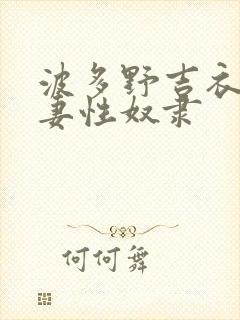 波多野吉衣
妻性奴隶
何何舞